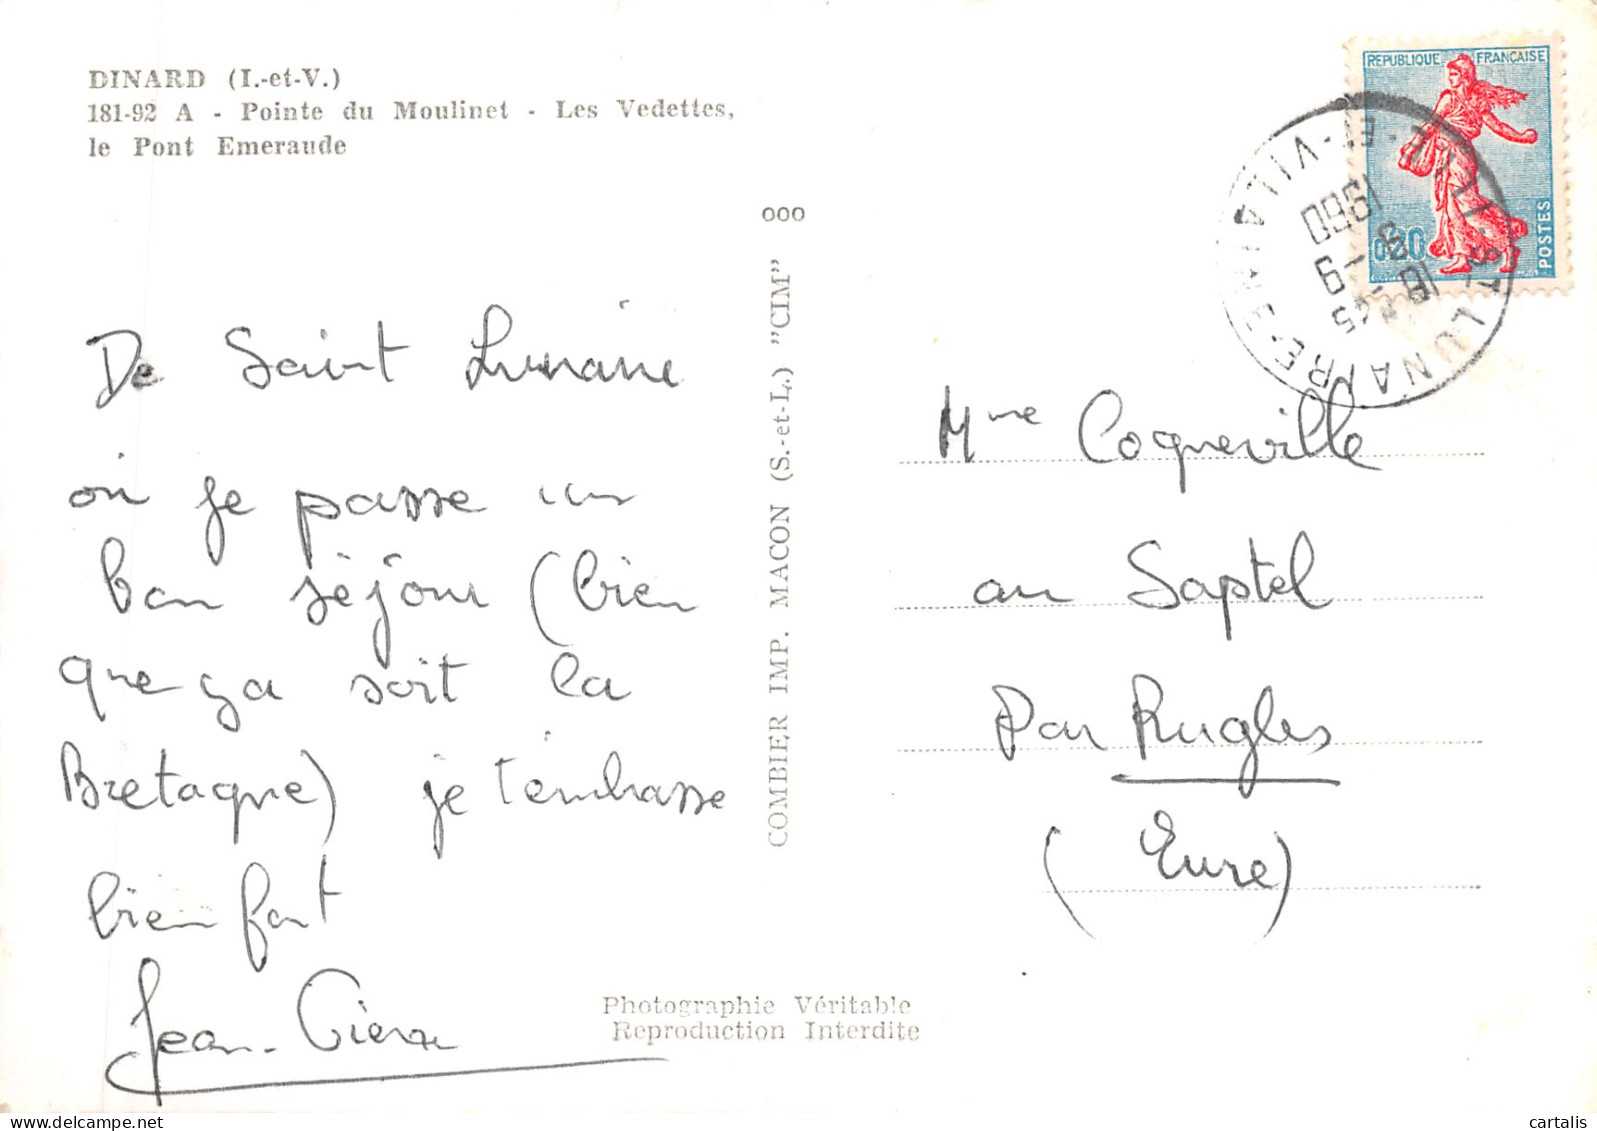 DINARD (I.-et-V.)
181-92 A - Pointe du Moulinet - Les Vedettes,
le Pont Emeraude
De Saint Lunaire
où je passe un
bon séjour (bien
que ça soit la
Bretagne) je t'embrasse
bien fort
Jean-Pierre
000
COMBIER IMP. MACON (S.-et-L.) "CIM"
Photographie Véritable
Reproduction Interdite
REPUBLIQUE FRANÇAISE
0,20
POSTES
ST LUNAIRE
ILLE-ET-VILAINE
18-45
9-9
1960
Mme Coqueville
au Saptel
Par Rugles
(Eure)
cartalis